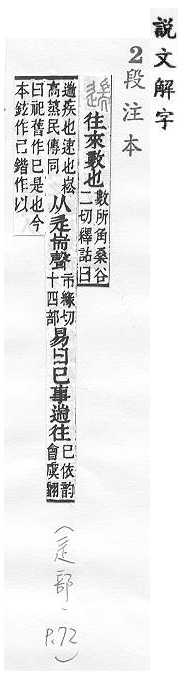 説文解字
2段注本
遄 往來數也 數所角桑谷二切釋詁曰
遄疾也速也崧高烝民傳同 从辵耑聲 市緣切十四部 易曰㠯事遄往 㠯依韵會虞翻
曰祀舊作㠯是也今本鉉作已鍇作以
(辵部, P.72)